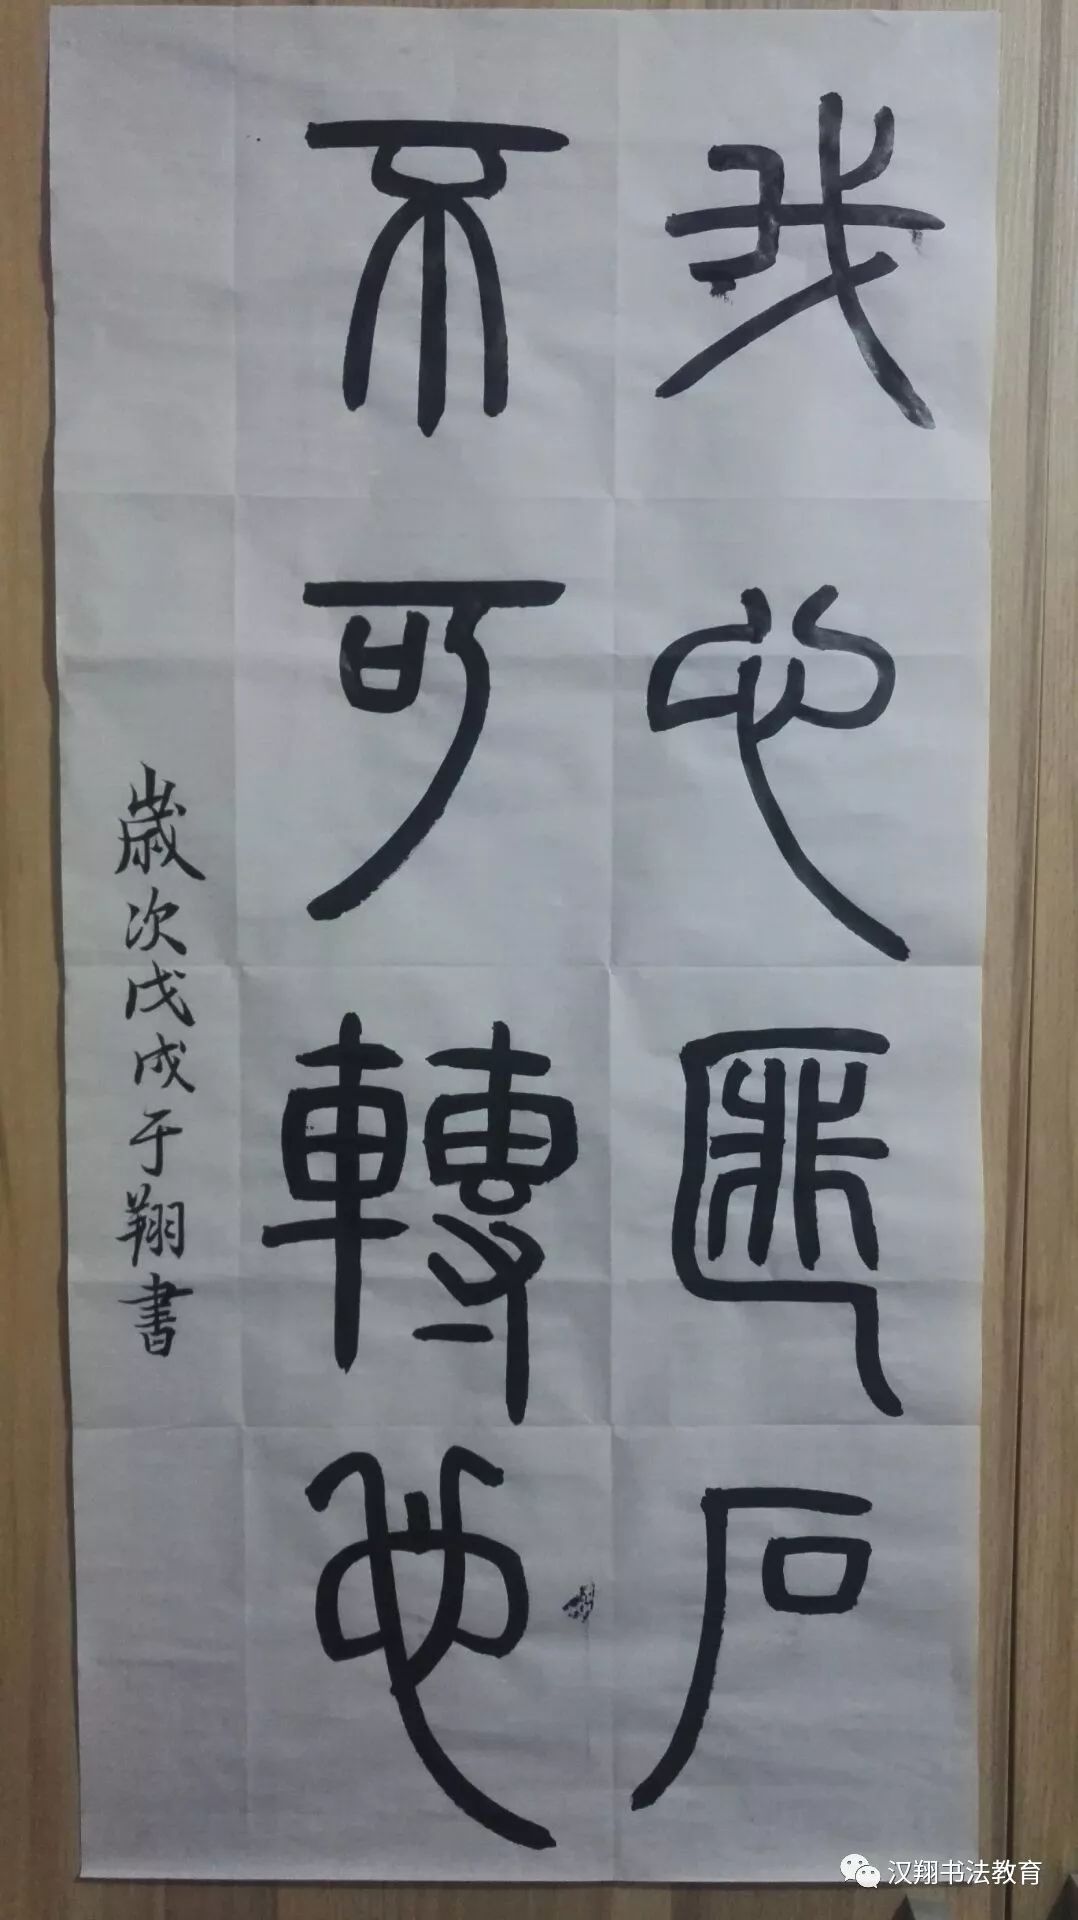 我心匪石
不可轉也
歲次戊戌于翔書
汉翔书法教育